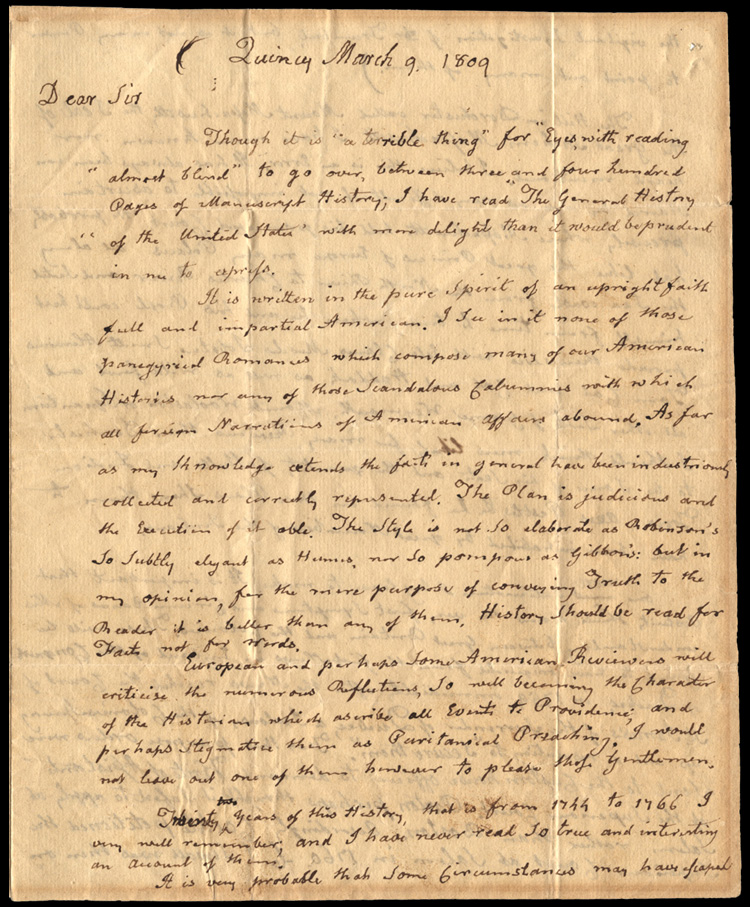 Quincy March 9. 1809
Dear Sir
Though it is "a terrible thing" for "Eyes, with reading
" almost blind" to go over, between three and four hundred
Pages of Manuscript History; I have read "The General History
" of the United States" with more delight than it would be prudent
in me to express.
It is written in the pure Spirit of an upright faith
full and impartial American. I See in it none of those
panegyrical Romances which compose many of our American
Histories nor any of those Scandalous Calumnies with which
all foreign Narrations of American Affairs abound. As far
as my Knowledge extends the facts in general have been industriously
collected and correctly represented. The Plan is judicious and
the Execution of it able. The Style is not So elaborate as Robinson's
So Subtly elegant as Humes, nor So pompous as Gibbon's: but in
my opinion, for the mere purpose of conveying Truth to the
Reader it is better than any of them. History Should be read for
Facts not for Words.
European and perhaps Some American Reviewers will
criticise the numerous Reflections, So well becoming the Character
of the Historian which ascribe all Events to Providence; and
perhaps Stigmatize them as Puritanical Preaching. I would
not leave out one of them however to please those Gentlemen.
two
Twenty Years of this History, that is from 1744 to 1766 I
very well remember; and I have never read So true and interesting
an account of them.
It is very probable that Some Circumstances may have escaped